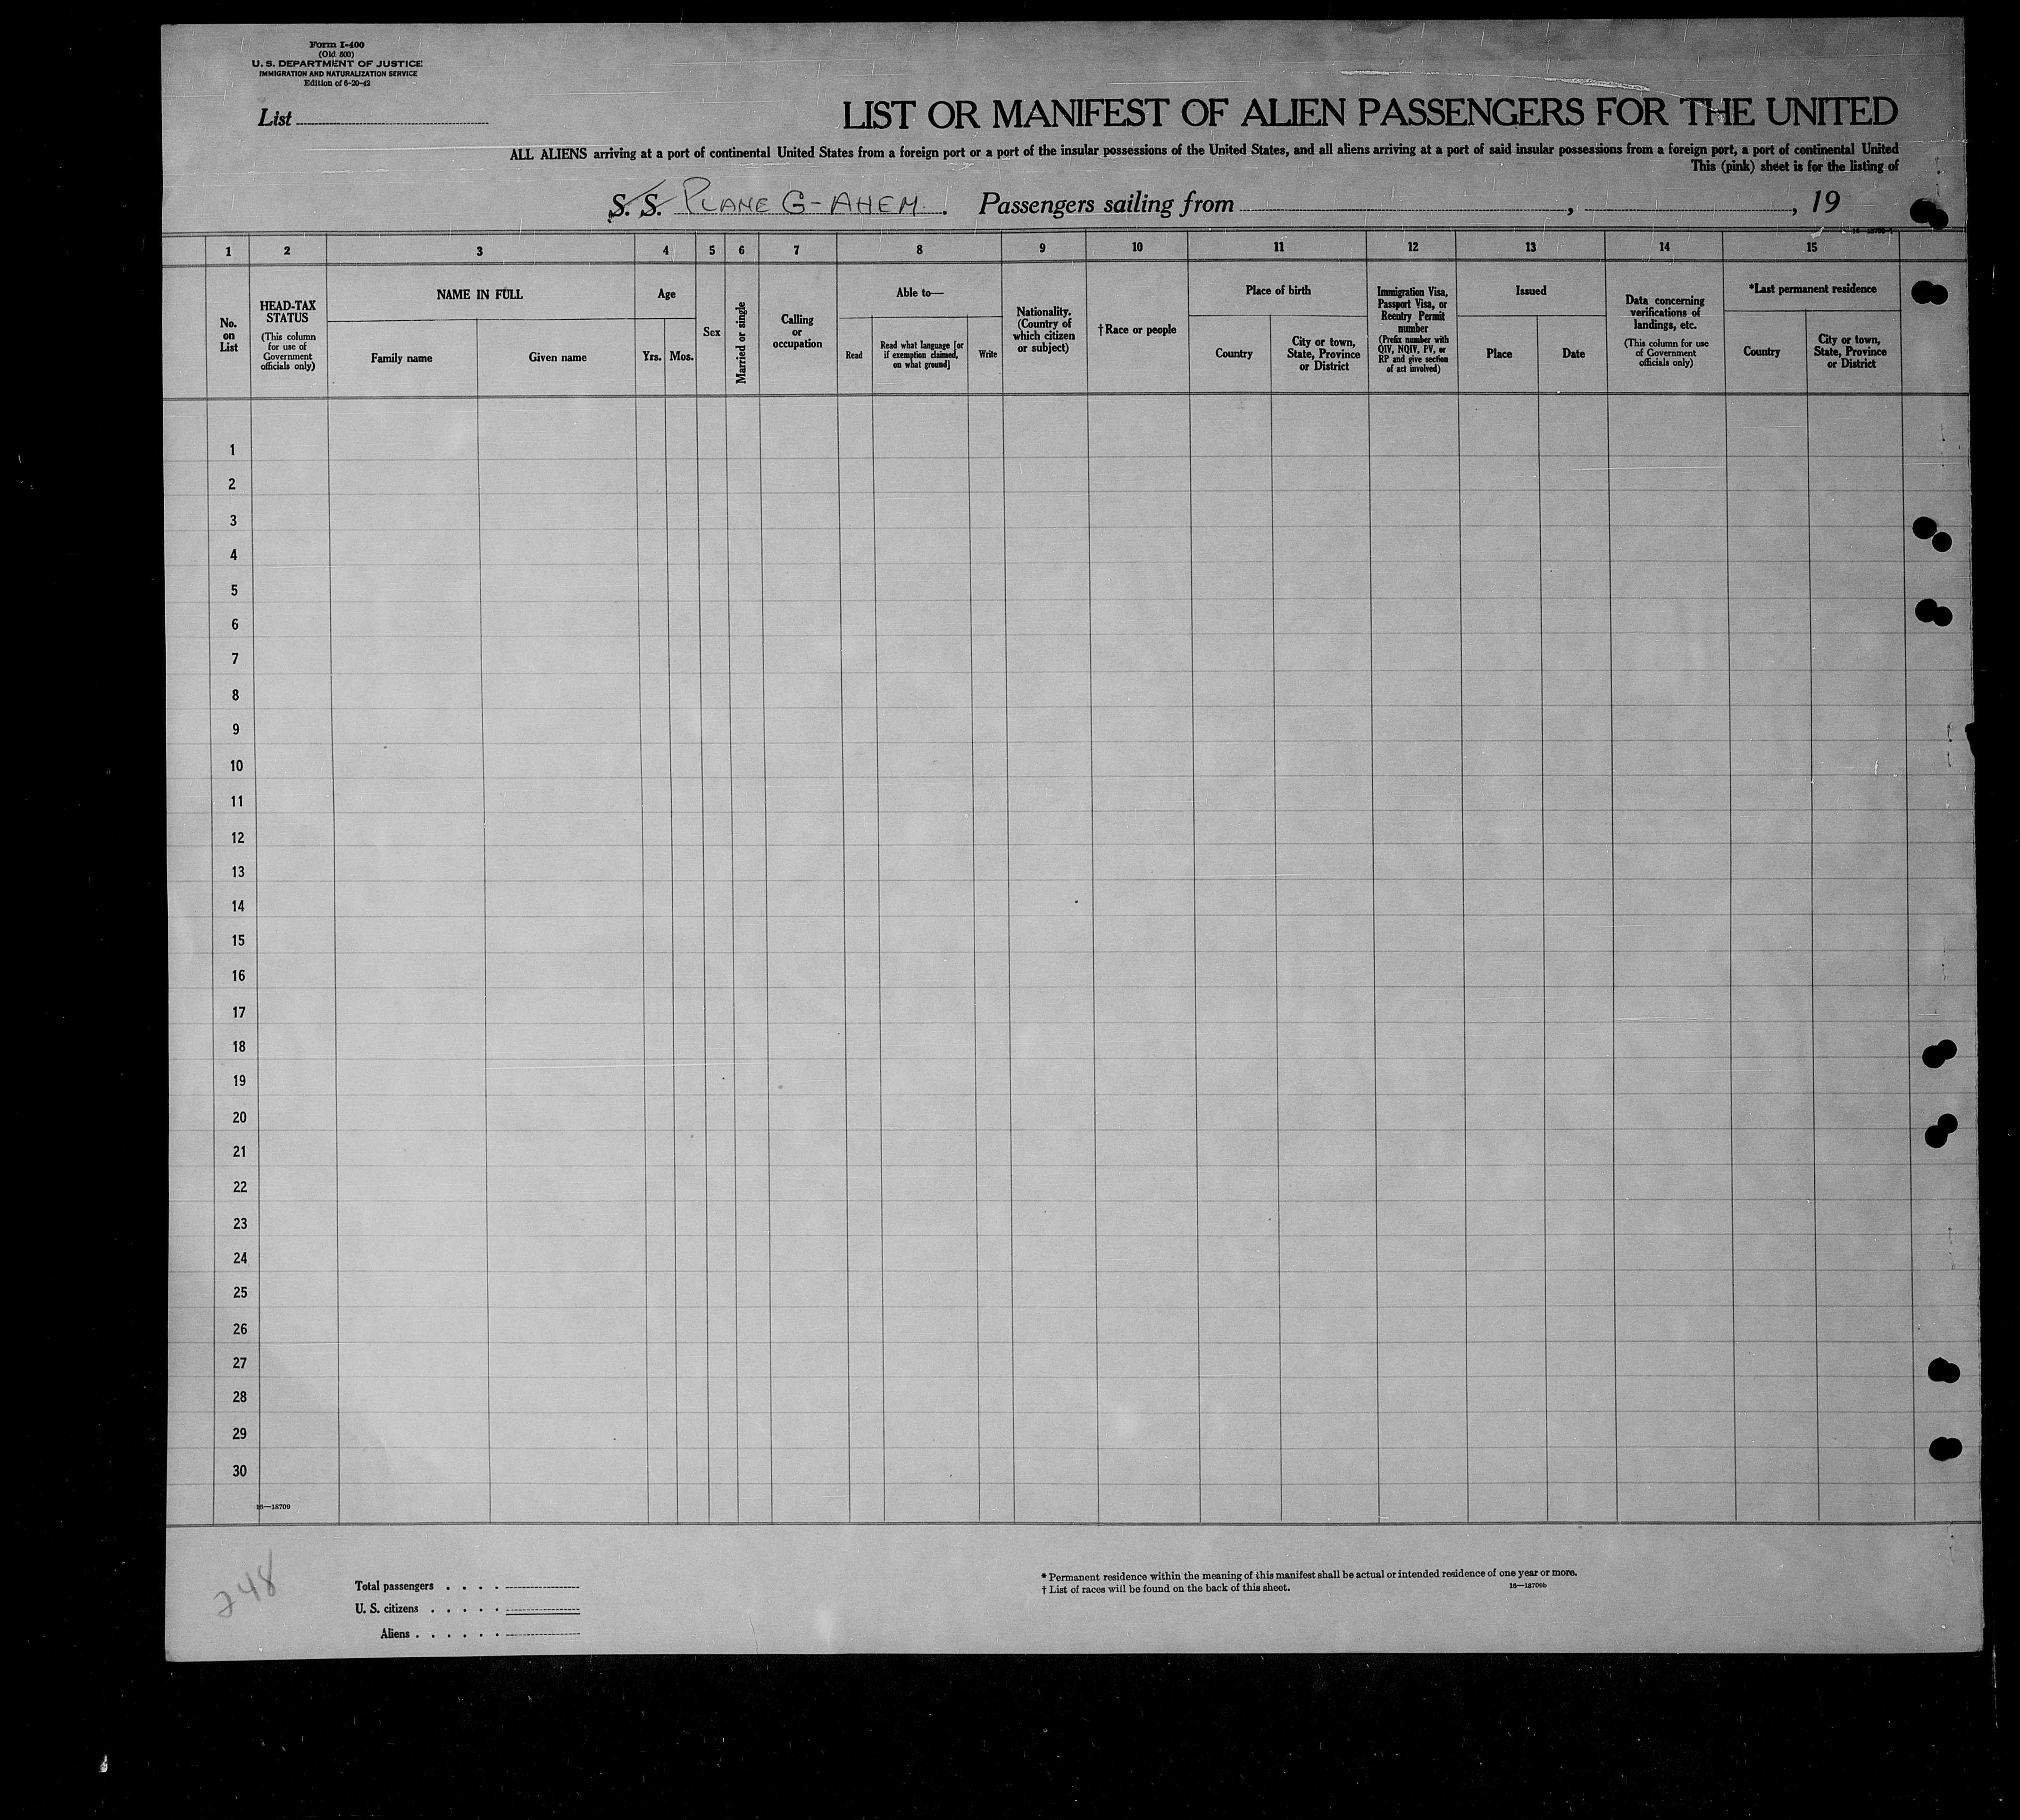 Form I-400
(Old 500)
U. S. DEPARTMENT OF JUSTICE
IMMIGRATION AND NATURALIZATION SERVICE
Edition of 6-20-42
List
LIST OR MANIFEST OF ALIEN PASSENGERS FOR THE UNITED
ALL ALIENS arriving at a port of continental United States from a foreign port or a port of the insular possessions of the United States, and all aliens arriving at a port of said insular possessions from a foreign port, a port of continental United
This (pink) sheet is for the listing of
S. S. PLANE G-AHEM. Passengers sailing from , , 19
1 2 3 4 5 6 7 8 9 10 11 12 13 14 15
No. on List
HEAD-TAX STATUS
(This column for use of Government officials only)
NAME IN FULL
Family name
Given name
Age
Yrs.
Mos.
Sex
Married or single
Calling or occupation
Able to—
Read
Read what language [or if exemption claimed, on what ground]
Write
Nationality. (Country of which citizen or subject)
†Race or people
Place of birth
Country
City or town, State, Province or District
Immigration Visa, Passport Visa, or Reentry Permit number
(Prefix number with QIV, NQIV, PV, or RP and give section of act involved)
Issued
Place
Date
Data concerning verifications of landings, etc.
(This column for use of Government officials only)
*Last permanent residence
Country
City or town, State, Province or District
1
2
3
4
5
6
7
8
9
10
11
12
13
14
15
16
17
18
19
20
21
22
23
24
25
26
27
28
29
30
16—18709
248
Total passengers . . . .
U. S. citizens . . . . .
Aliens . . . . . .
* Permanent residence within the meaning of this manifest shall be actual or intended residence of one year or more.
† List of races will be found on the back of this sheet.
16—18706b